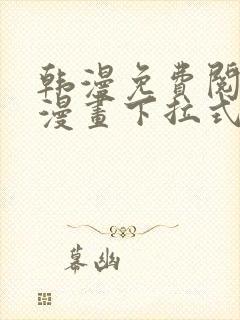 韩漫免費閱
漫畫下拉式
幕幽